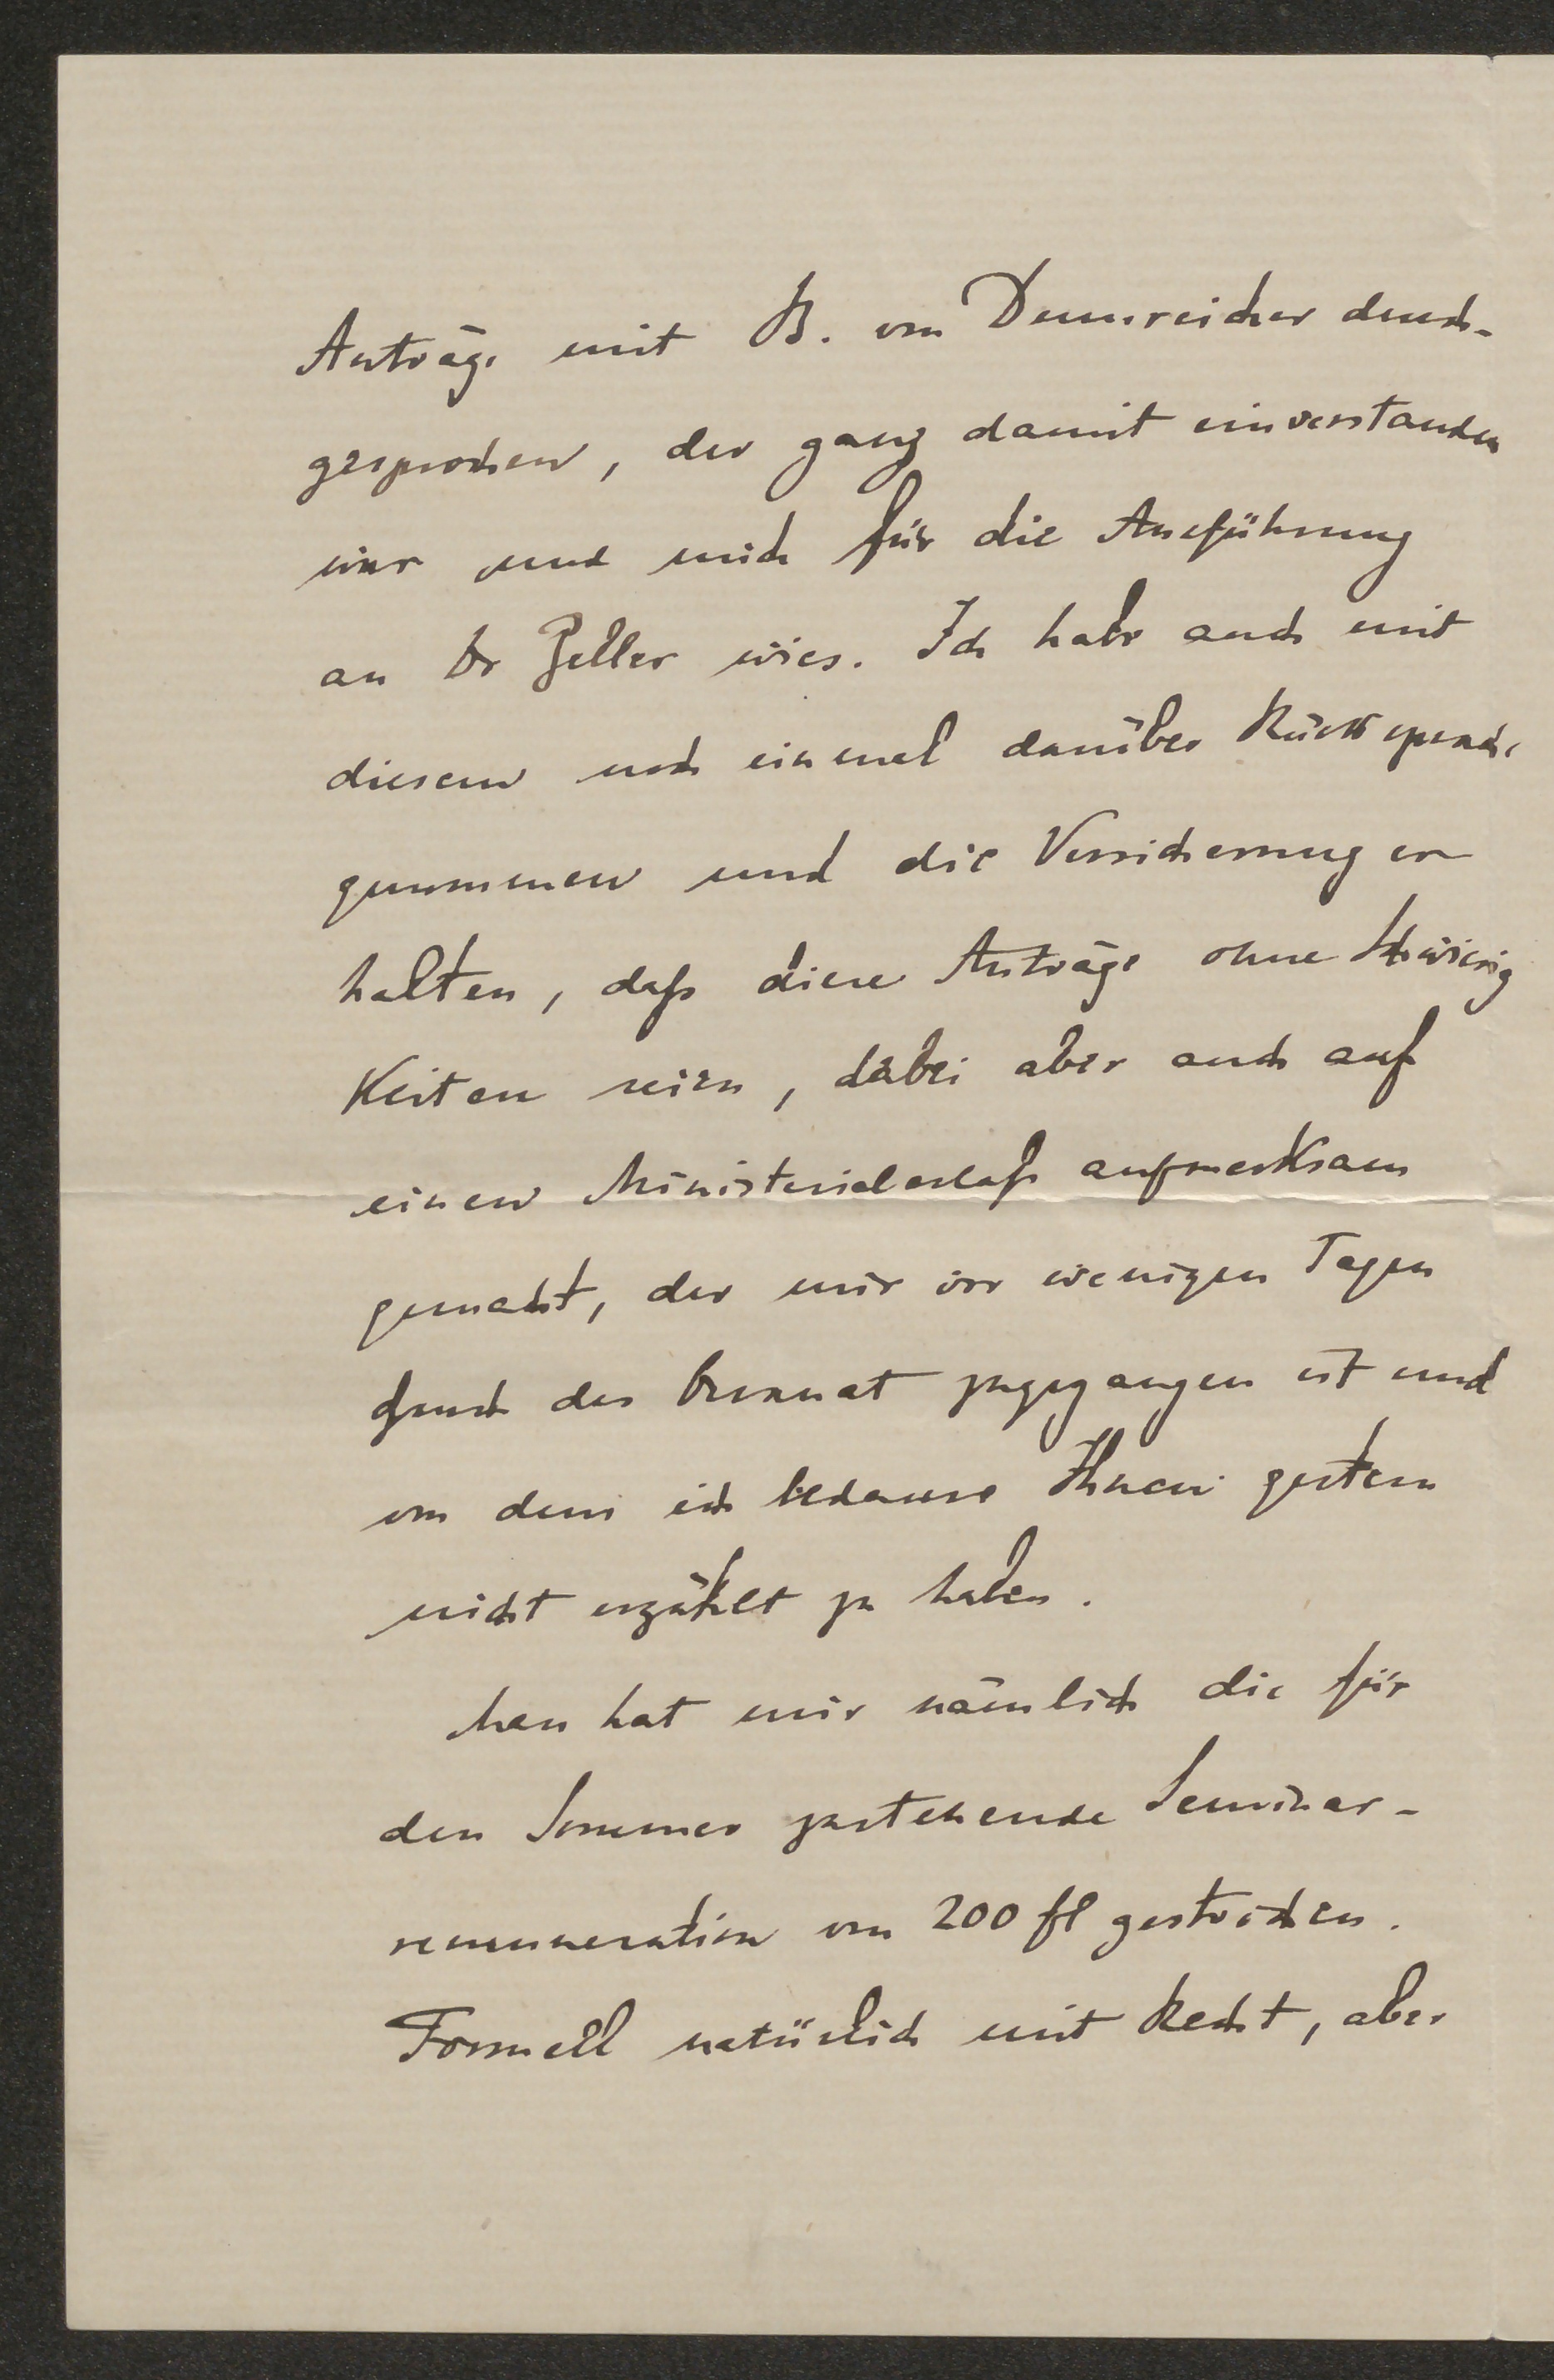 Anträge mit B. von Dumreicher durch-
gesprochen, der ganz damit einverstanden
war und mich für die Ausführung
an Dr Zeller wies. Ich habe auch mit
diesem noch einmal darüber Rücksprache
genommen und die Versicherung er
halten, daß diese Anträge ohne Schwierig
keiten seien, dabei aber auch auf
einen Ministerialerlaß aufmerksam
gemacht, der mir vor wenigen Tagen
durch das Decanat zugegangen ist und
von dem ich bedaure Ihnen gestern
nicht erzählt zu haben.
Man hat mir nämlich die für
den Sommer zustehende Seminar-
remuneration von 200 fl gestrichen.
Formell natürlich mit Recht, aber